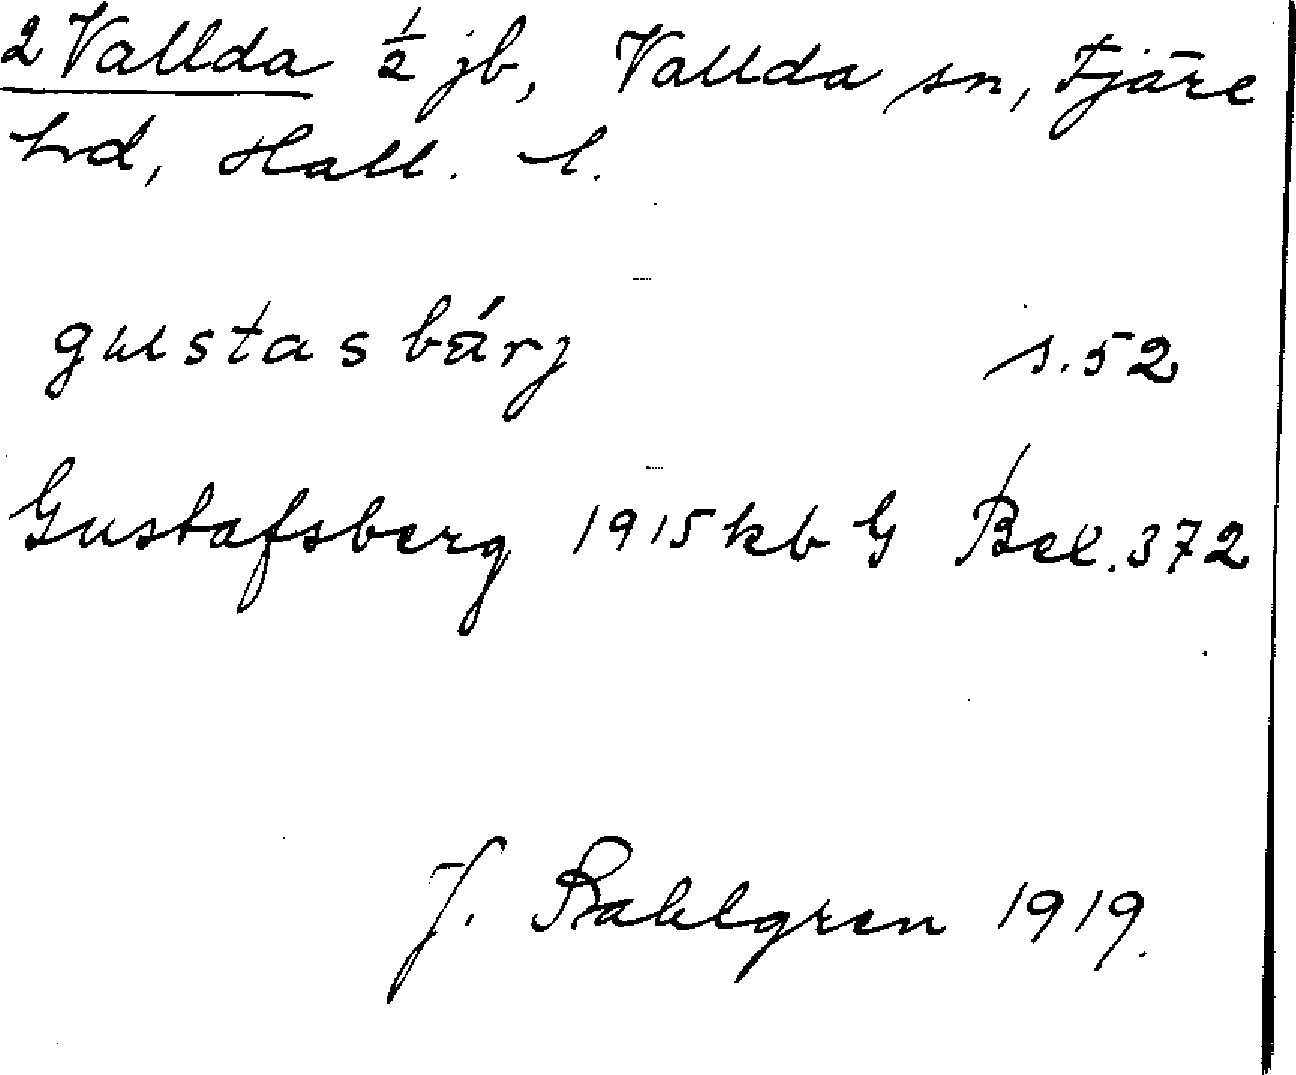 2 Vallda ½ jb, Vallda sn, Fjäre
hd, Hall. l.
gustasbärj s. 52
Gustafsberg 1915 kb G Bel. 372
J. Sahlgren 1919.